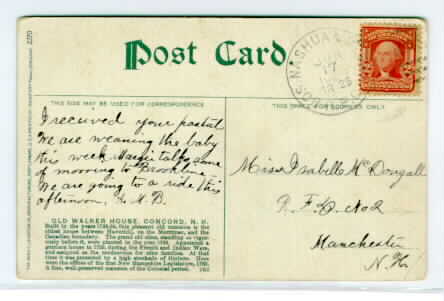 Post Card
THIS SIDE MAY BE USED FOR CORRESPONDENCE
THIS SIDE FOR ADDRESS ONLY.
NASHUA
17
I received your postal
We are weaning the baby
this week.
of morning to Brookline
We are going to a ride this
afternoon.
OLD WALKER HOUSE, CONCORD, N. H.
Built in the years 1733-34, this pleasant old mansion is the
oldest house between Haverhill, on the Merrimac, and the
Canadian boundary. The grand old elms, standing so vigor-
ously before it, were planted in the year 1764. Appointed a
garrison house in 1739, during the French and Indian Wars,
and assigned as the rendezvous for nine families. At that
time it was protected by a high stockade of timbers. Here
met the
of the first New Hampshire Legislature, 1782.
A fine, well-preserved mansion of the Colonial period.
Miss Isabelle McDougall
R. F. D. No 2
Manchester
N. H.